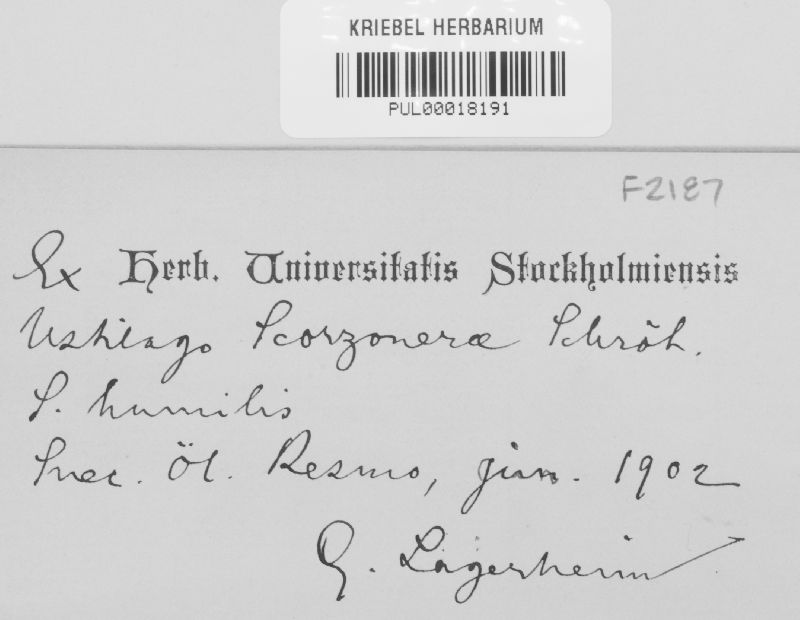 KRIEBEL HERBARIUM
PUL00018191
F2187
Ex Herb. Universitatis Stockholmiensis
Ustilago Scorzoneræ Schröt.
S. humilis
Suec. Öl. Resmo, jun. 1902
G. Lagerheim